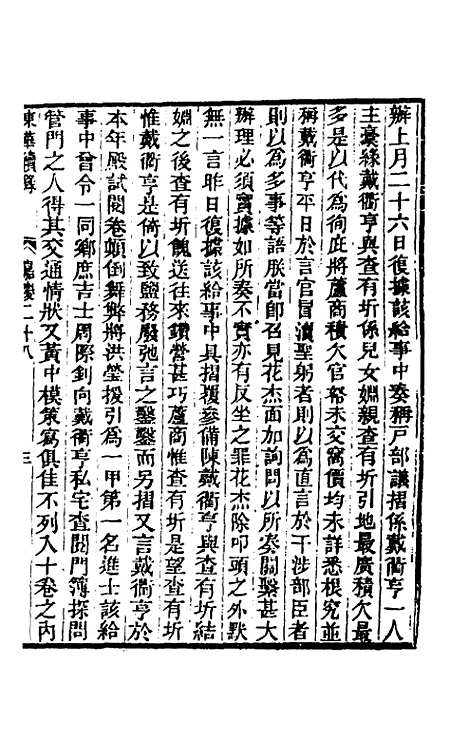 辦上月二十六日復據該給事中奏稱戸部議摺係戴衢亨一人
主稾緣戴衢亨與查有圻係兒女婣親查有圻引地最廣積欠最
多是以代為徇庇將蘆商積欠官帑未交窩價均未詳悉根究並
稱戴衢亨平日於言官冒瀆聖躬者則以為直言於干涉部臣者
則以為多事等語朕當卽召見花杰面加詢問以所奏關繫甚大
辦理必須實據如所奏不實亦有反坐之罪花杰除叩頭之外默
無一言昨日復據該給事中具摺覆參備陳戴衢亨與查有圻結
婣之後查有圻餽送往來鑽營甚巧蘆商惟查有圻是望查有圻
惟戴衢亨是倚以致鹽務廢弛言之鑿鑿而另摺又言戴衢亨於
本年殿試閱卷顚倒舞弊將洪瑩援引為一甲第一名進士該給
事中曾令一同鄉庶吉士周際釗向戴衢亨私宅查閱門簿探問
管門之人得其交通情狀又黃中模策寫俱佳不列入十卷之內
東華續錄
嘉慶二十八
三